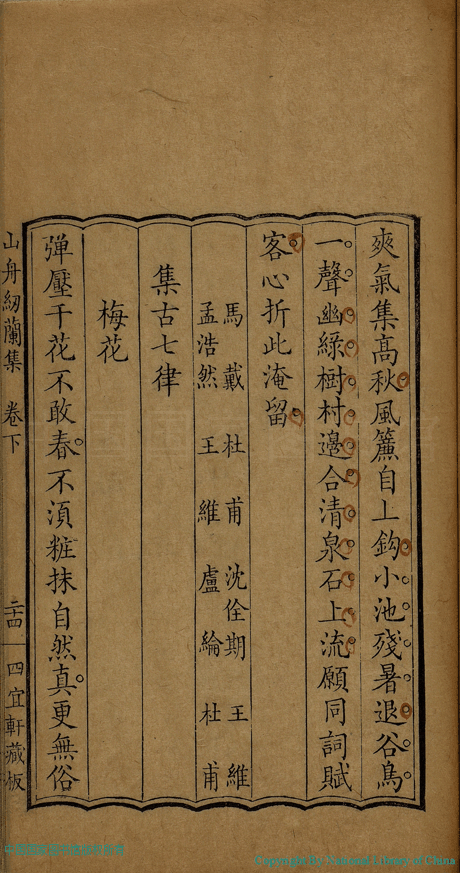 爽氣集高秋風簾自上鈎小池殘暑退谷鳥
一聲幽綠樹村邊合清泉石上流願同詞賦
客心折此淹留
馬戴　杜甫　沈佺期　王維
孟浩然　王維　盧綸　杜甫
集古七律
梅花
弹壓千花不敢春不湏粧抹自然真更無俗
山舟紉蘭集　卷下　二十四　四宜軒藏板
Copyright By National Library of China